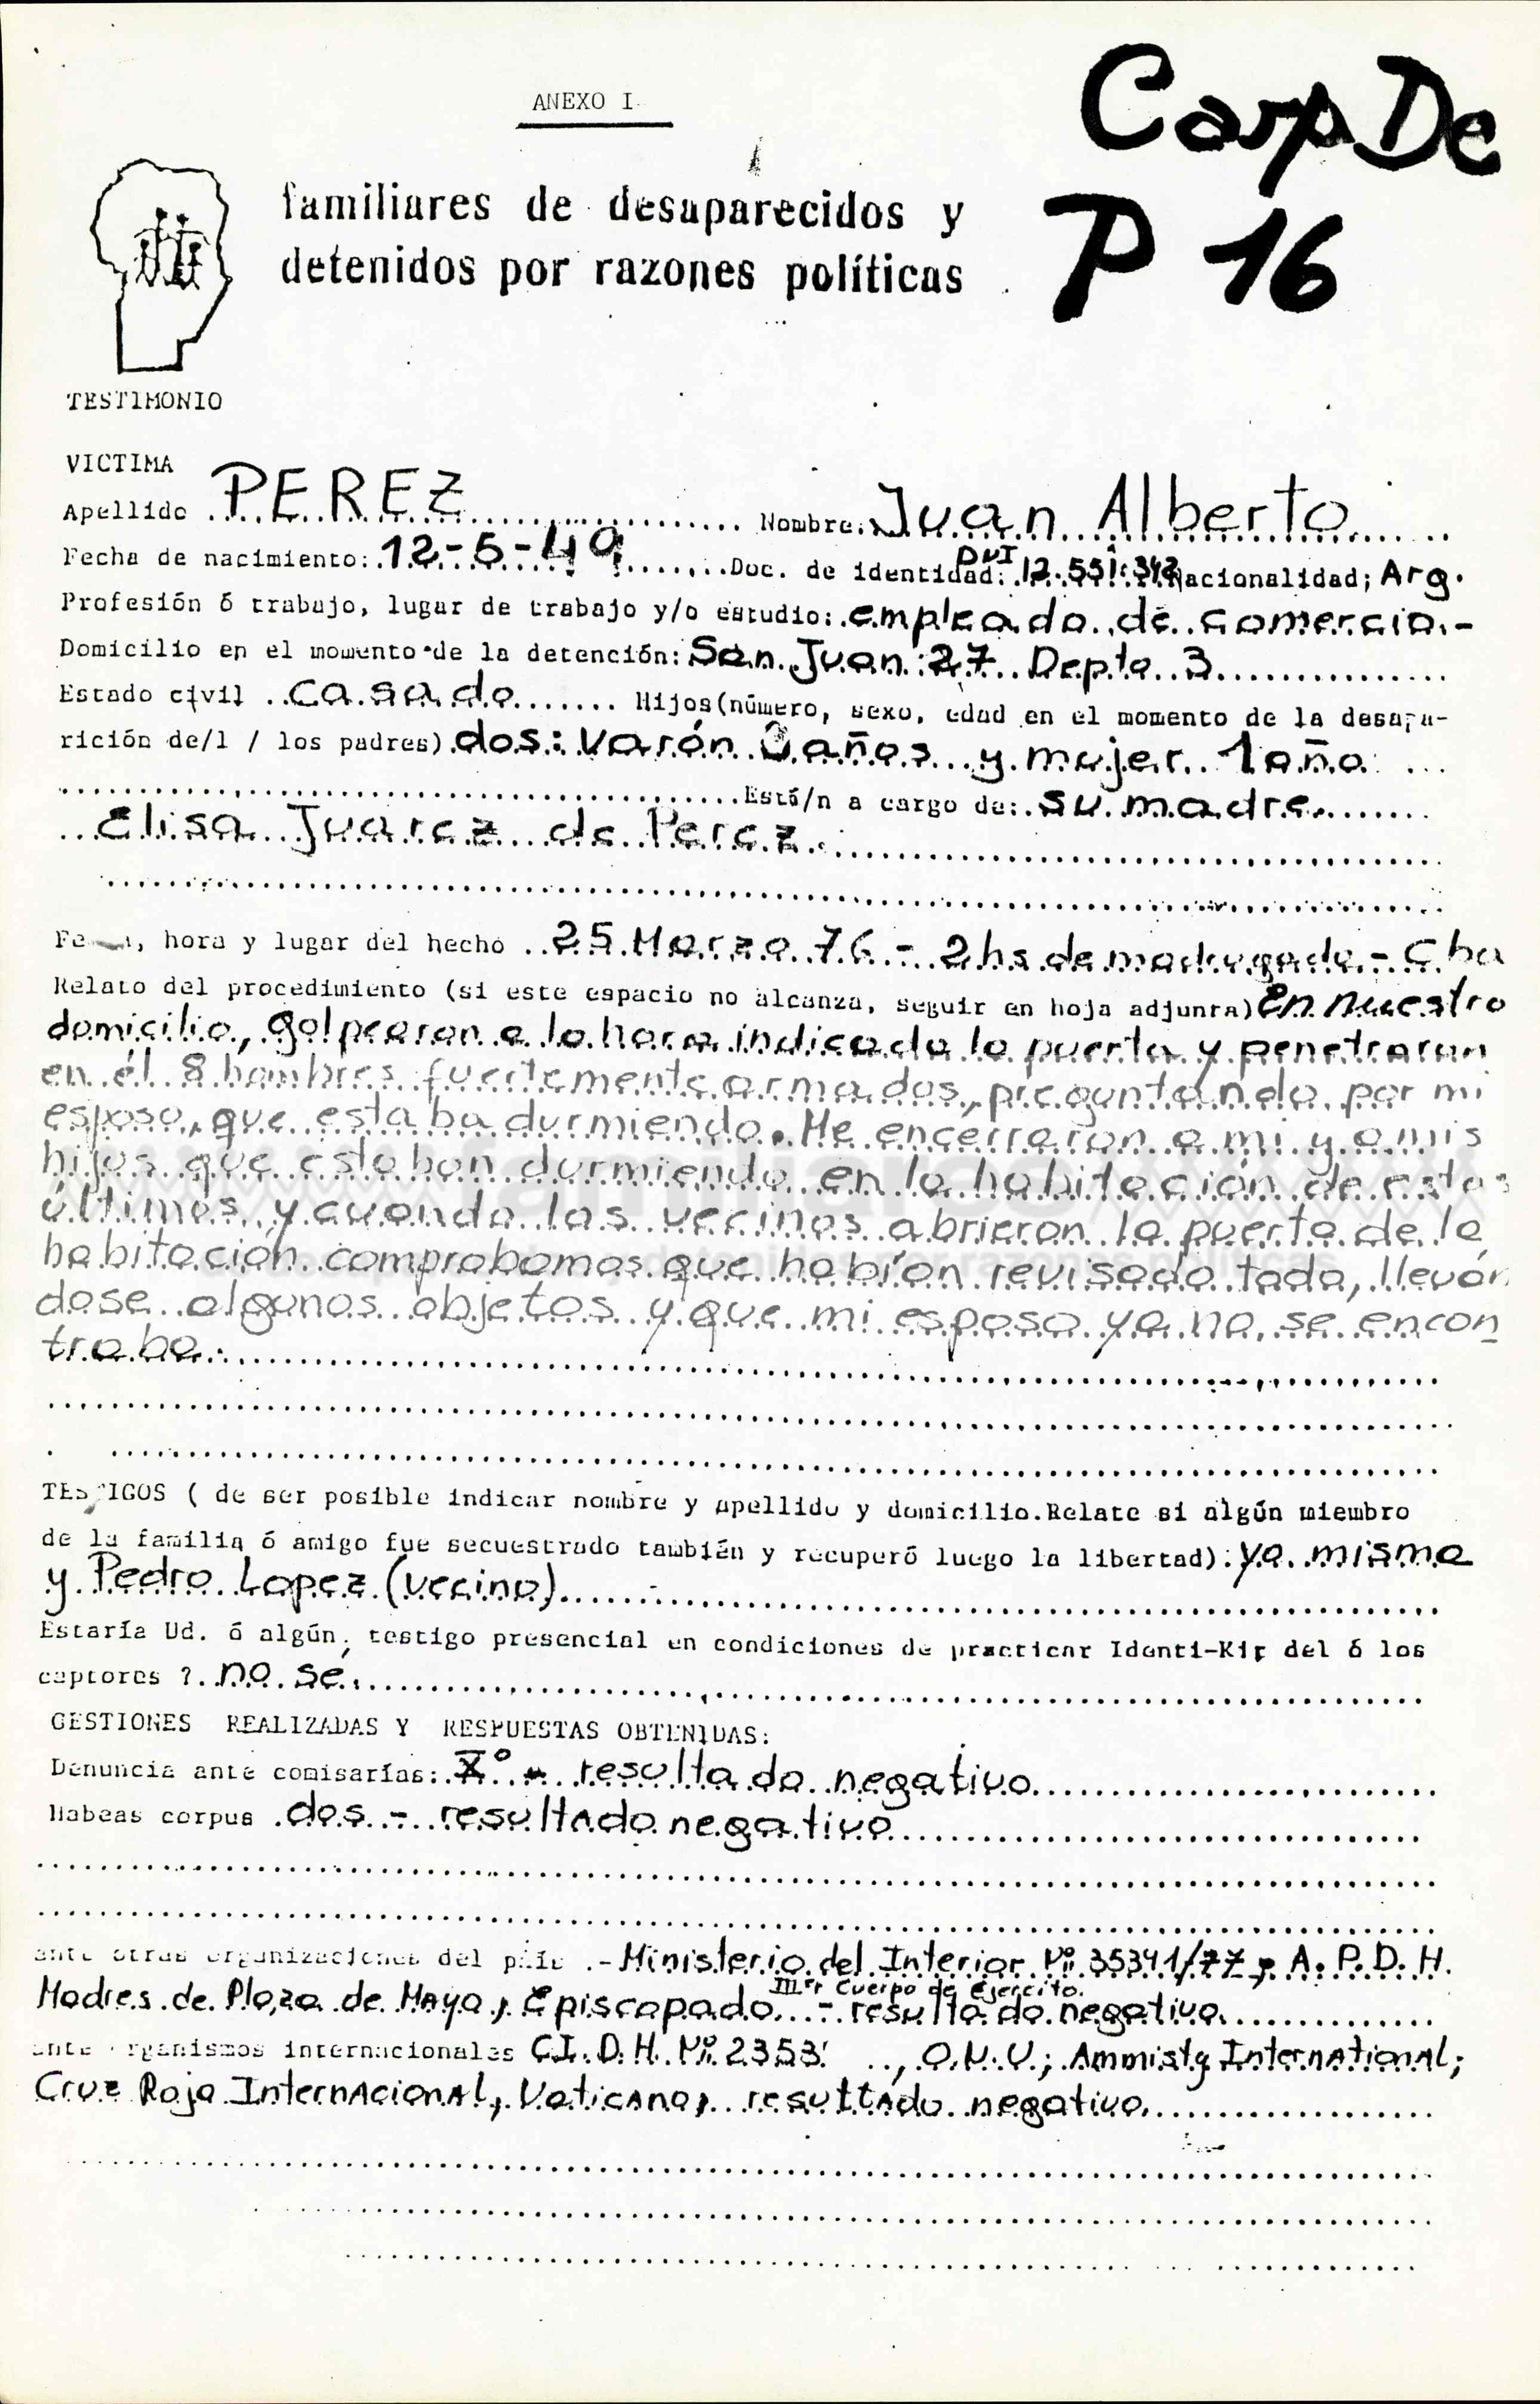 ANEXO I
Carp De
P 16
familiares de desaparecidos y
detenidos por razones políticas
TESTIMONIO
VICTIMA
Apellido PEREZ Nombre Juan Alberto
Fecha de nacimiento: 12-5-49 Doc. de identidad: DNI 12.551.342 Nacionalidad; Arg.
Profesión ó trabajo, lugar de trabajo y/o estudio: empleado de comercio.-
Domicilio en el momento de la detención: San Juan 27 Depto 3
Estado civil casado Hijos(número, sexo, edad en el momento de la desapa-
rición de/l / los padres) dos: varón 3 años y mujer 1 año
Está/n a cargo de: su madre
Elisa Juarez de Perez
hora y lugar del hecho 25 Marzo 76 - 2 hs de madrugada - Cba
Relato del procedimiento (si este espacio no alcanza, seguir en hoja adjunta) En nuestro
domicilio, golpearon a la hora indicada la puerta y penetraron
en él 8 hombres fuertemente armados, preguntando por mi
esposo, que estaba durmiendo. Me encerraron a mi y a mis
hijos que estaban durmiendo en la habitación de estos
últimos, y cuando los vecinos abrieron la puerta de la
habitación comprobamos que habían revisado todo, lleván
dose algunos objetos y que mi esposo ya no se encon
traba.
TESTIGOS ( de ser posible indicar nombre y apellido y domicilio.Relate si algún miembro
de la familia ó amigo fue secuestrado también y recuperó luego la libertad): yo misma
y Pedro Lopez (vecino)
Estaría Ud. ó algún, testigo presencial en condiciones de practicar Identi-Kit del ó los
captores ? no se
GESTIONES REALIZADAS Y RESPUESTAS OBTENIDAS:
Denuncia ante comisarías: Xº - resultado negativo
Habeas corpus dos - resultado negativo
ante otras organizaciones del país - Ministerio del Interior Nº 35341/77, A.P.D.H.
IIIer Cuerpo de Ejercito.
Madres de Plaza de Mayo, Episcopado - resultado negativo
ante organismos internacionales C.I.D.H. Nº 2353 , O.N.U.; Ammisty International;
Cruz Roja Internacional, Vaticano, resultado negativo